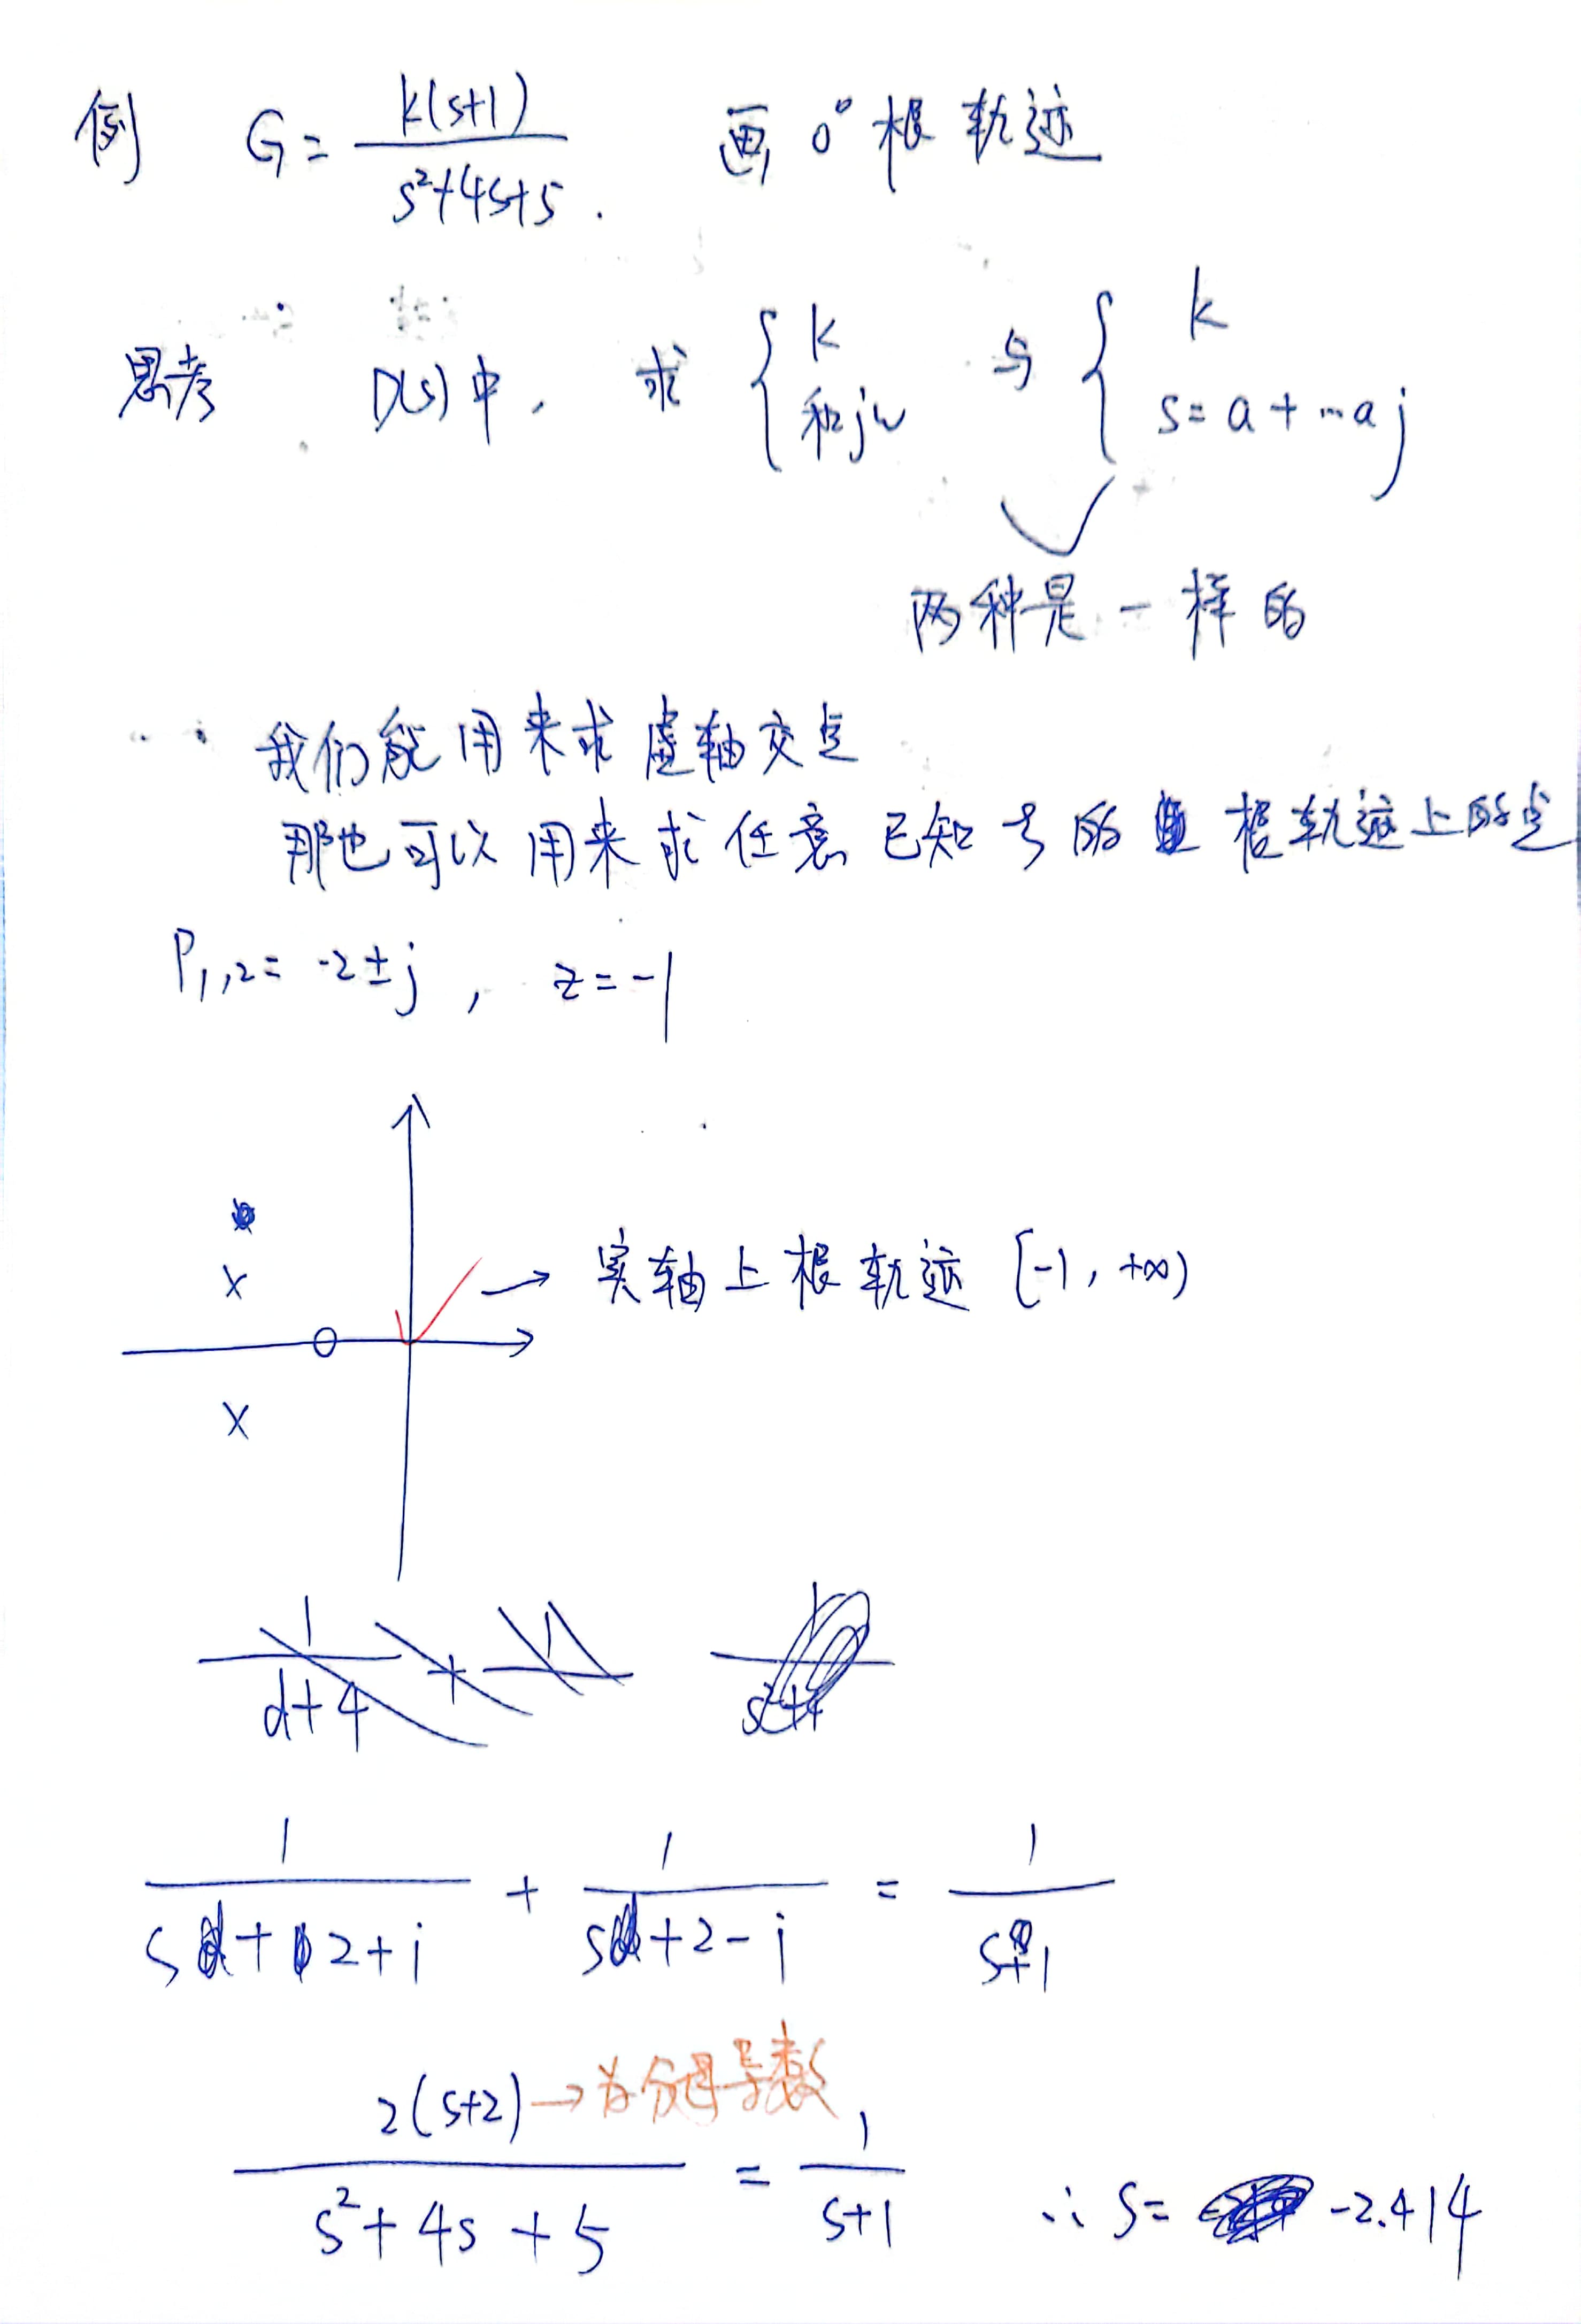 例 G = k(s+1) / s²+4s+5 . 画 0° 根轨迹
思考 D(s)中, 求 { k 和jw 与 { k s = a + …a j
两种是一样的
我们能用来求虚轴交点
那也可以用来求任意已知ξ的根轨迹上的点
P1,2 = -2±j , z = -1
→ 实轴上根轨迹 [-1, +∞)
1 / d+4 +
1 / s+2+j + 1 / s+2-j = 1 / s+1
2(s+2) → 为分母导数
2(s+2) / s²+4s+5 = 1 / s+1 ∴ s = -2.414